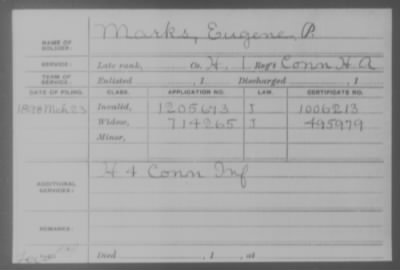 NAME OF SOLDIER: Marks, Eugene P.
SERVICE: Late rank, Co. H, 1 Reg't Conn H A
TERM OF SERVICE: Enlisted , 1 Discharged , 1
DATE OF FILING. CLASS. APPLICATION NO. LAW. CERTIFICATE NO.
1898 Mch 23 Invalid, 1205673 J 1006213
Widow, 714265 J 495979
Minor,
ADDITIONAL SERVICES: H 4 Conn Inf
REMARKS:
Died , 1 , at